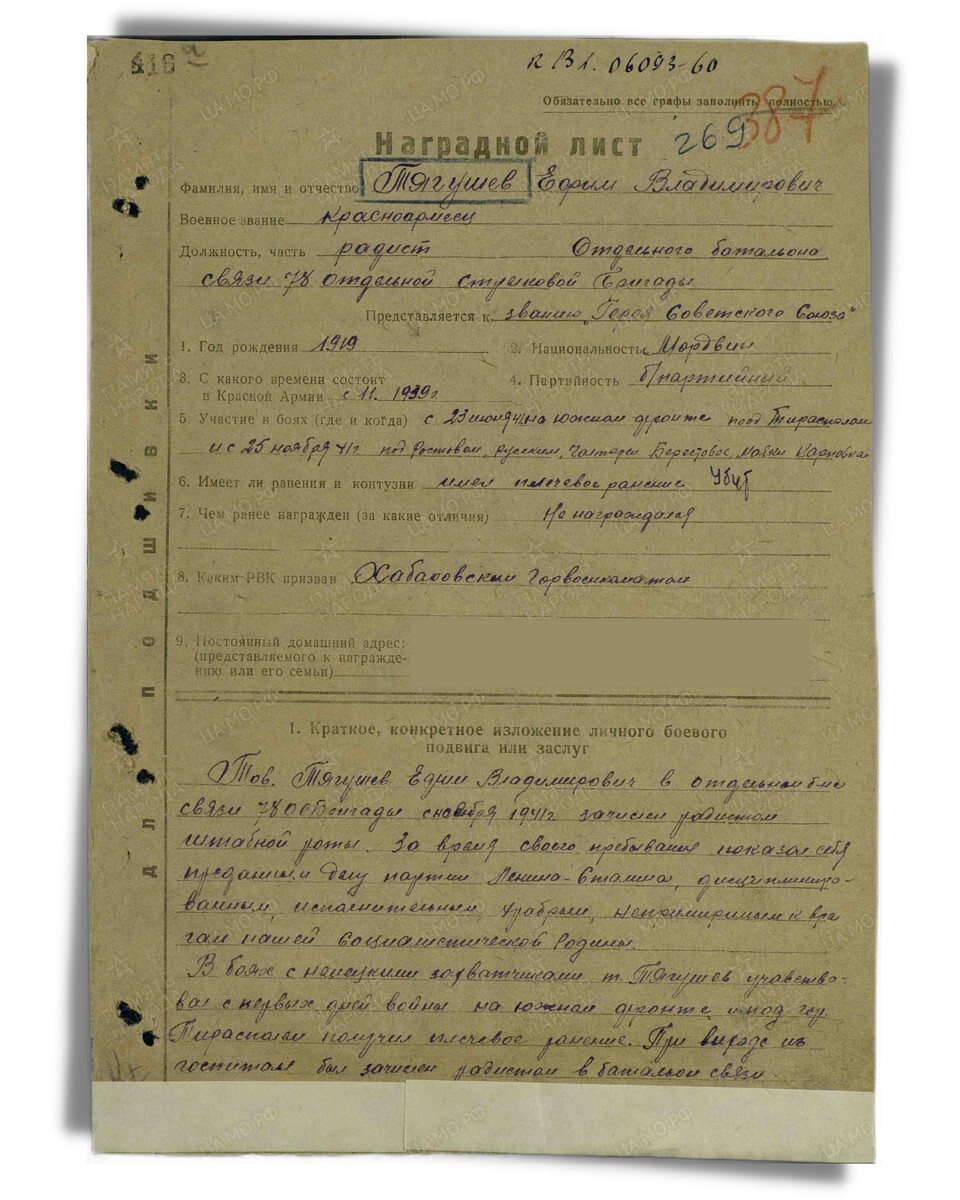 416
06093-60
Обязательно все графы заполнить полностью.
387
269
Наградной лист
Фамилия, имя и отчество Тягушев Ефрим Владимирович
Военное звание красноармеец
Должность, часть радист Отдельного батальона
связи 78 отдельной стрелковой бригады
Представляется к званию „Героя Советского Союза"
1. Год рождения 1919 2. Национальность Мордвин
3. С какого времени состоит
в Красной Армии с 11. 1939 г. 4. Партийность б/партийный
5. Участие в боях (где и когда) с 23 июня 41 г. на южном фронте под Тирасполем
и с 25 ноября 41 г. под Ростовом, русским, Чалтырь Берестовое,
6. Имеет ли ранения и контузии имел плечевое ранение Убит
7. Чем ранее награжден (за какие отличия) Не награждался
8. Каким РВК призван Хабаровским Горвоенкоматом
9. Постоянный домашний адрес:
(представляемого к награжде-
нию или его семьи)
Для подшивки
1. Краткое, конкретное изложение личного боевого
подвига или заслуг
Тов. Тягушев Ефрим Владимирович в отдельном б-не
связи 78 ОСБригады с ноября 1941 г. зачислен радистом
штабной роты. За время своего пребывания показал себя
преданным делу партии Ленина-Сталина, дисциплиниро-
ванным, исполнительным, храбрым, непримиримым к вра
гам нашей Социалистической Родины.
В боях с немецкими захватчиками т. Тягушев участво-
вал с первых дней войны на южном фронте и под гор
Тирасполем получил плечевое ранение. При выходе из
госпиталя был зачислен радистом в батальон связи.